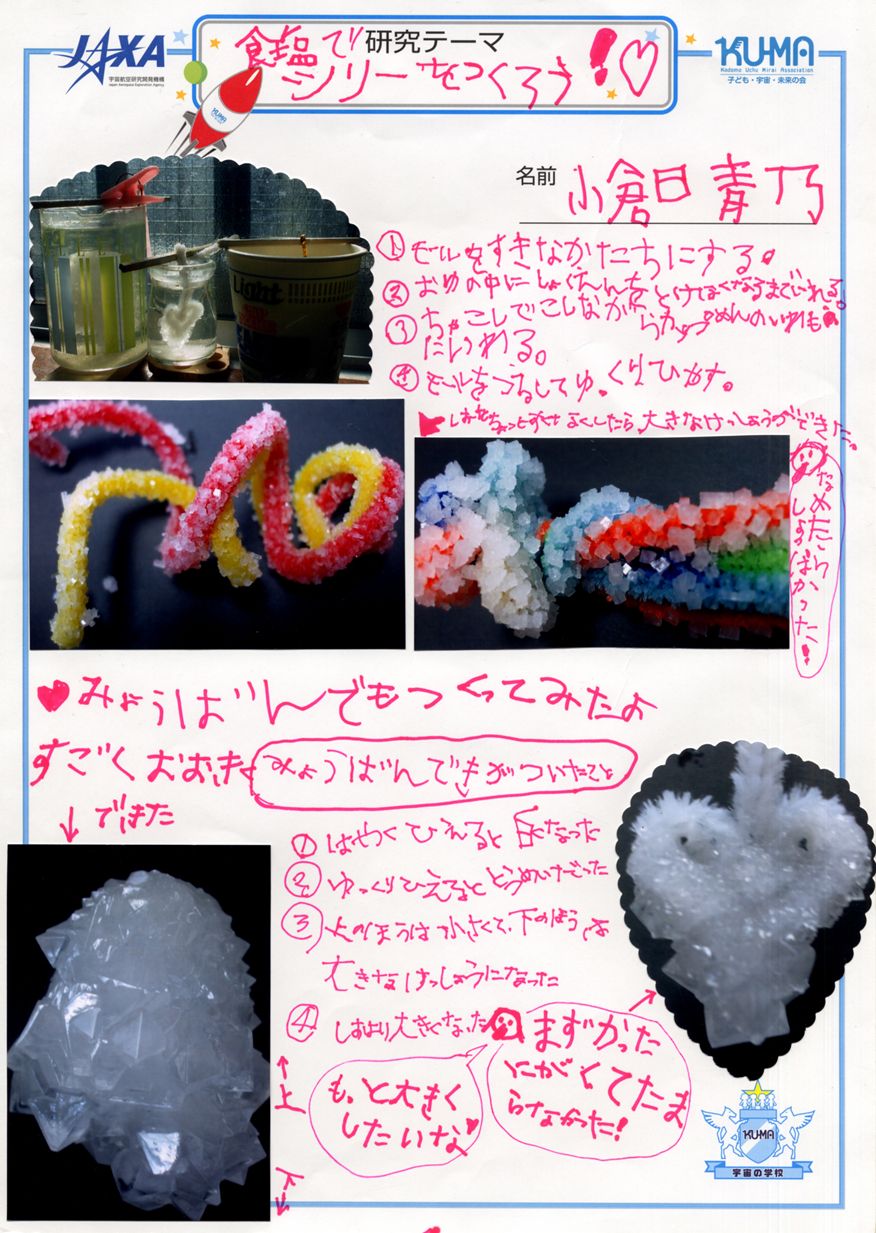 JAXA
宇宙航空研究開発機構
Japan Aerospace Exploration Agency
研究テーマ
食塩で
シリーをつくろう!♡
KU-MA
Kodomo Uchu Mirai Association
子ども・宇宙・未来の会
KU-MA
名前 小倉日青乃
Light
①モールをすきなかたちにする。
②おゆの中にしょくえんをとけなくなるまでいれる。
③ちゃこしでこしながら
カップめんのいれもの
にいれる。
④モールをつるしてゆっくりひやす。
しおをちょっとすくなくしたら大きなけっしょうができた。
なめたら
しょっぱかった!
♥みょうばんでもつくってみたよ
すごくおおきく
できた
↓
みょうばんできがついたこと
①はやくひえると白くなった
②ゆっくりひえるととうめいだった
③上のほうは小さくて、下のほうは
大きなけっしょうになった
④しおより大きくなった
まずかった
にがくてたま
らなかった!
もっと大きく
したいな♥
↑
上
下
↓
KU-MA
宇宙の学校